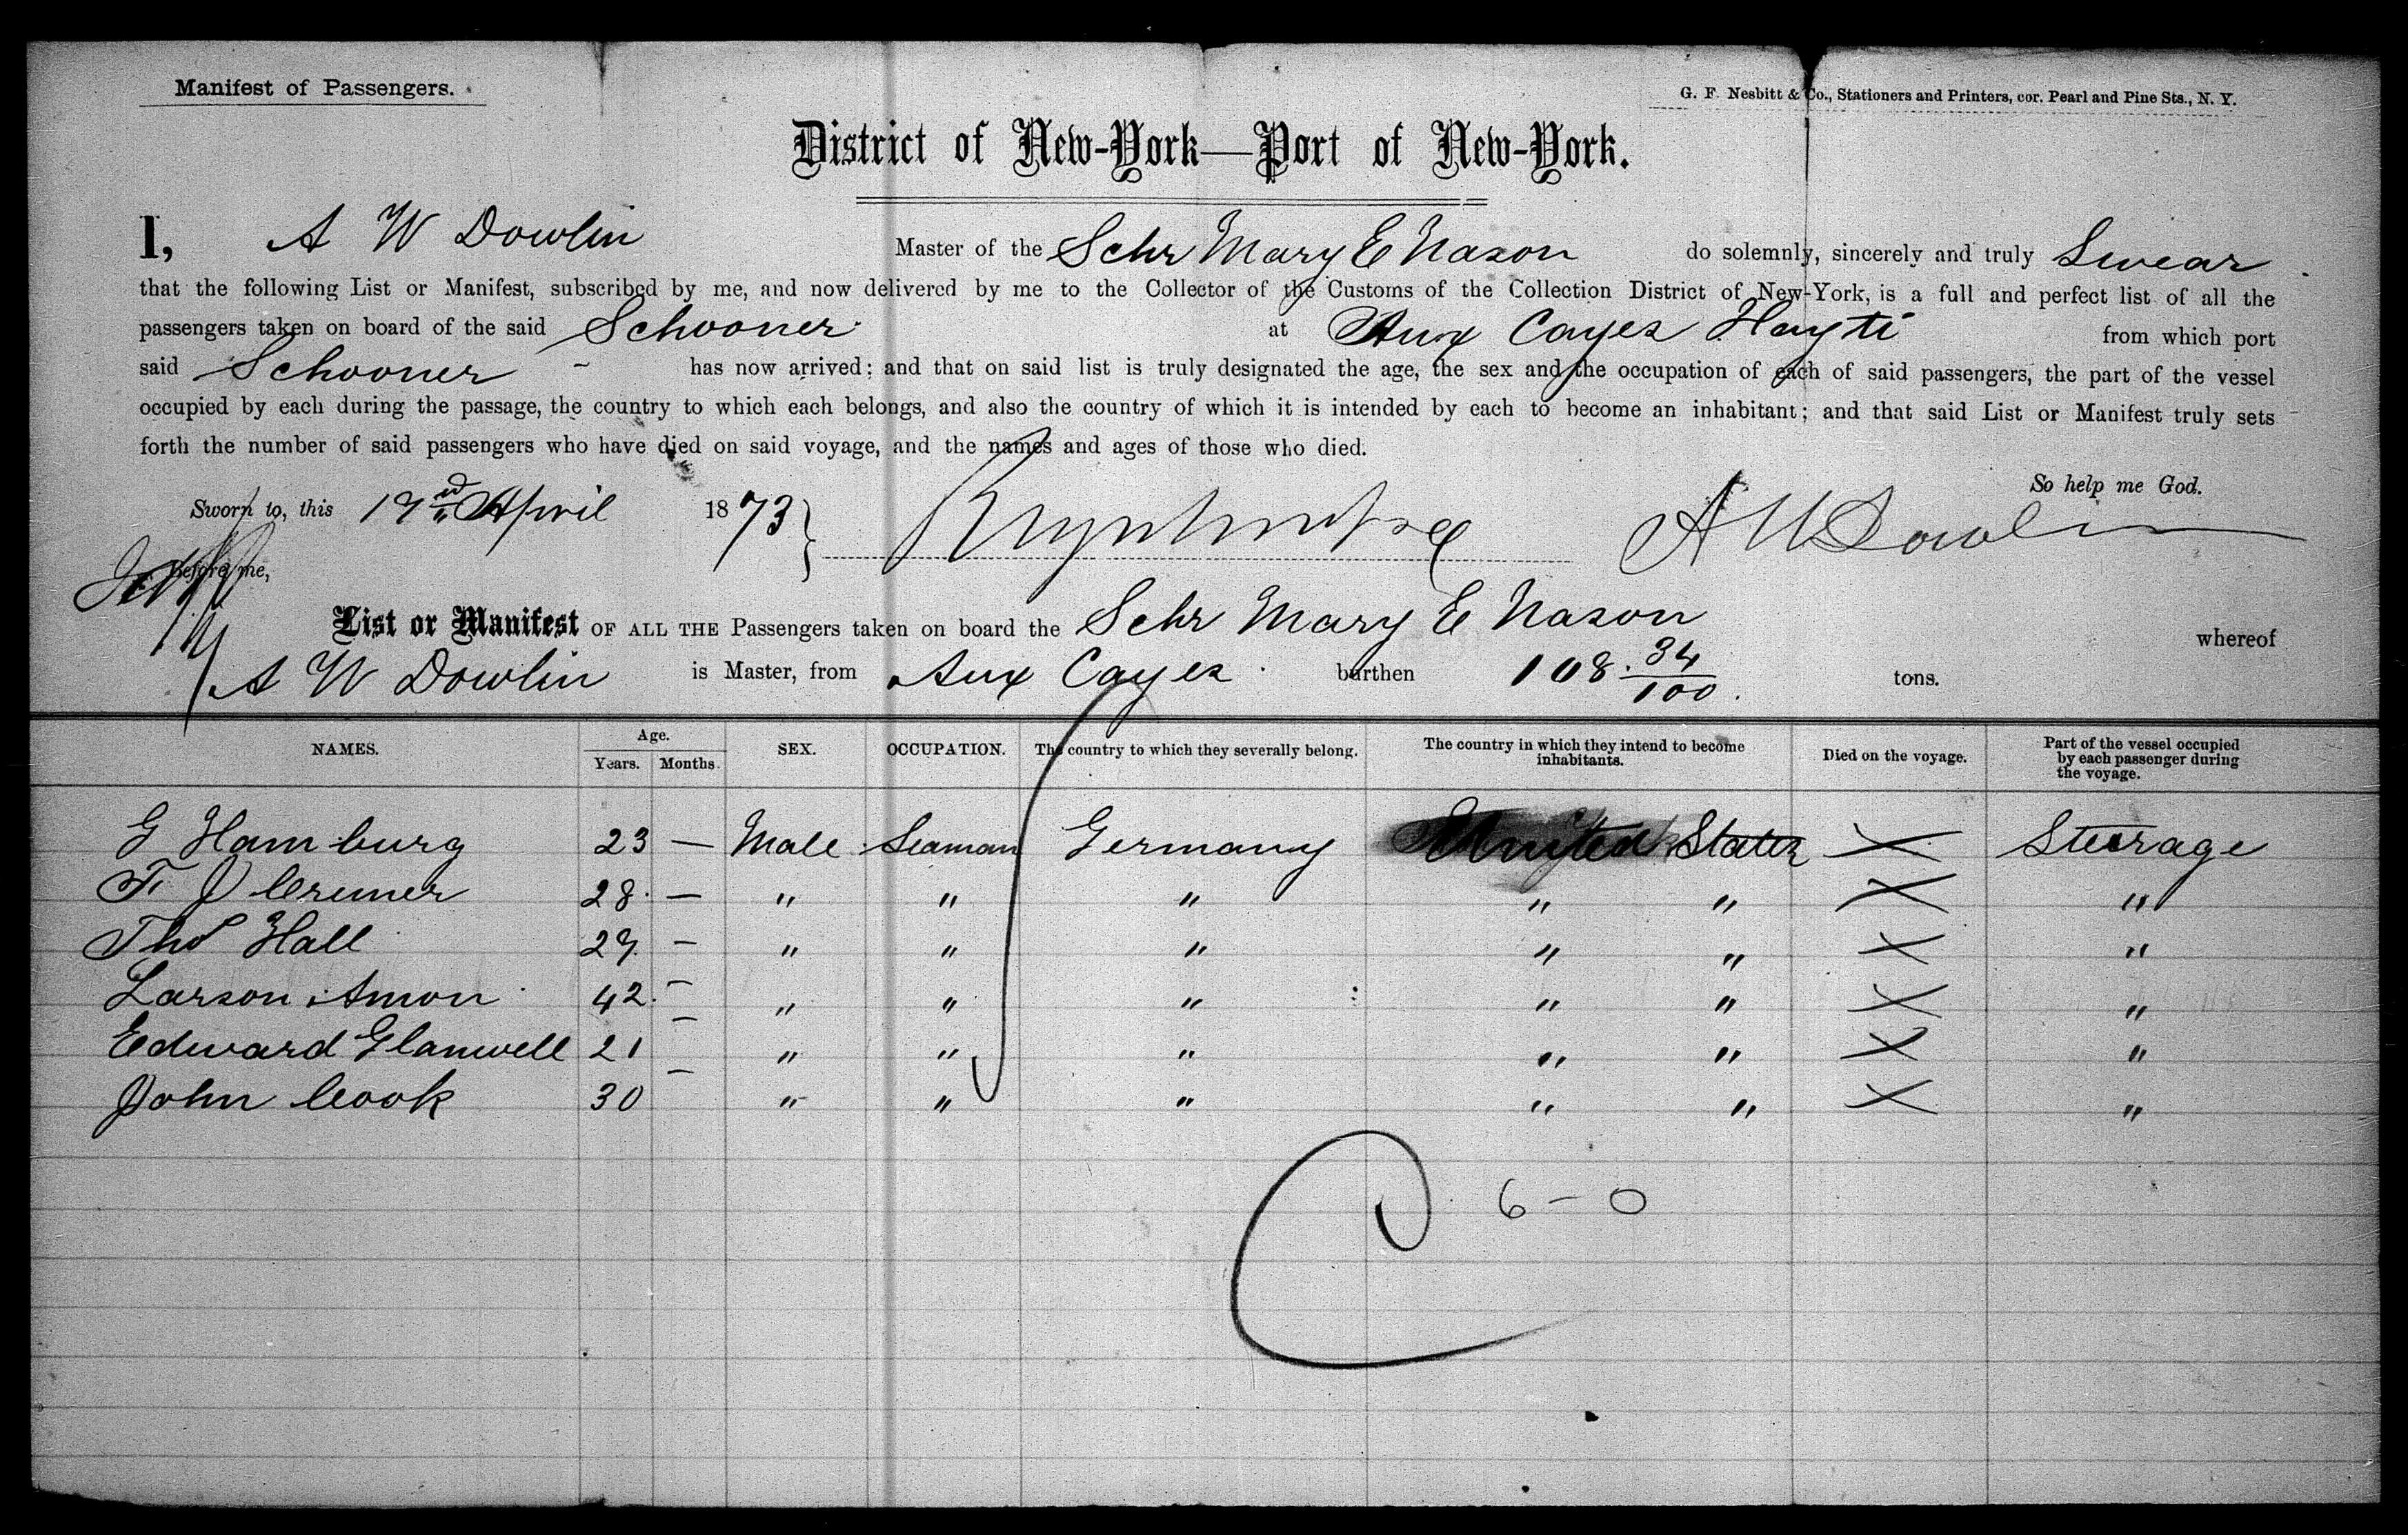 Manifest of Passengers.
G. F. Nesbitt & Co., Stationers and Printers, cor. Pearl and Pine Sts., N. Y.
District of New-York—Port of New-York.
I, A W Dowlin Master of the Schr Mary E Nason do solemnly, sincerely and truly Swear
that the following List or Manifest, subscribed by me, and now delivered by me to the Collector of the Customs of the Collection District of New-York, is a full and perfect list of all the
passengers taken on board of the said Schooner at Aux Cayes Hayti from which port
said Schooner has now arrived; and that on said list is truly designated the age, the sex and the occupation of each of said passengers, the part of the vessel
occupied by each during the passage, the country to which each belongs, and also the country of which it is intended by each to become an inhabitant; and that said List or Manifest truly sets
forth the number of said passengers who have died on said voyage, and the names and ages of those who died.
So help me God.
Sworn to, this April 1873 A W Dowlin
Before me,
List or Manifest OF ALL THE Passengers taken on board the Schr Mary E Nason whereof
A W Dowlin is Master, from Aux Cayes burthen 108 34/100 tons.
NAMES. Age. Years. Months. SEX. OCCUPATION. The country to which they severally belong. The country in which they intend to become inhabitants. Died on the voyage. Part of the vessel occupied by each passenger during the voyage.
G Hamburg 23 — Male Seaman Germany United States X Steerage
F. J Cremer 28 — " " " " " X "
Thos Hall 29 — " " " " " X "
Larson Amon 42 — " " " " " X "
Edward Glanwell 21 — " " " " " X "
John Cook 30 — " " " " " X "
6 — 0